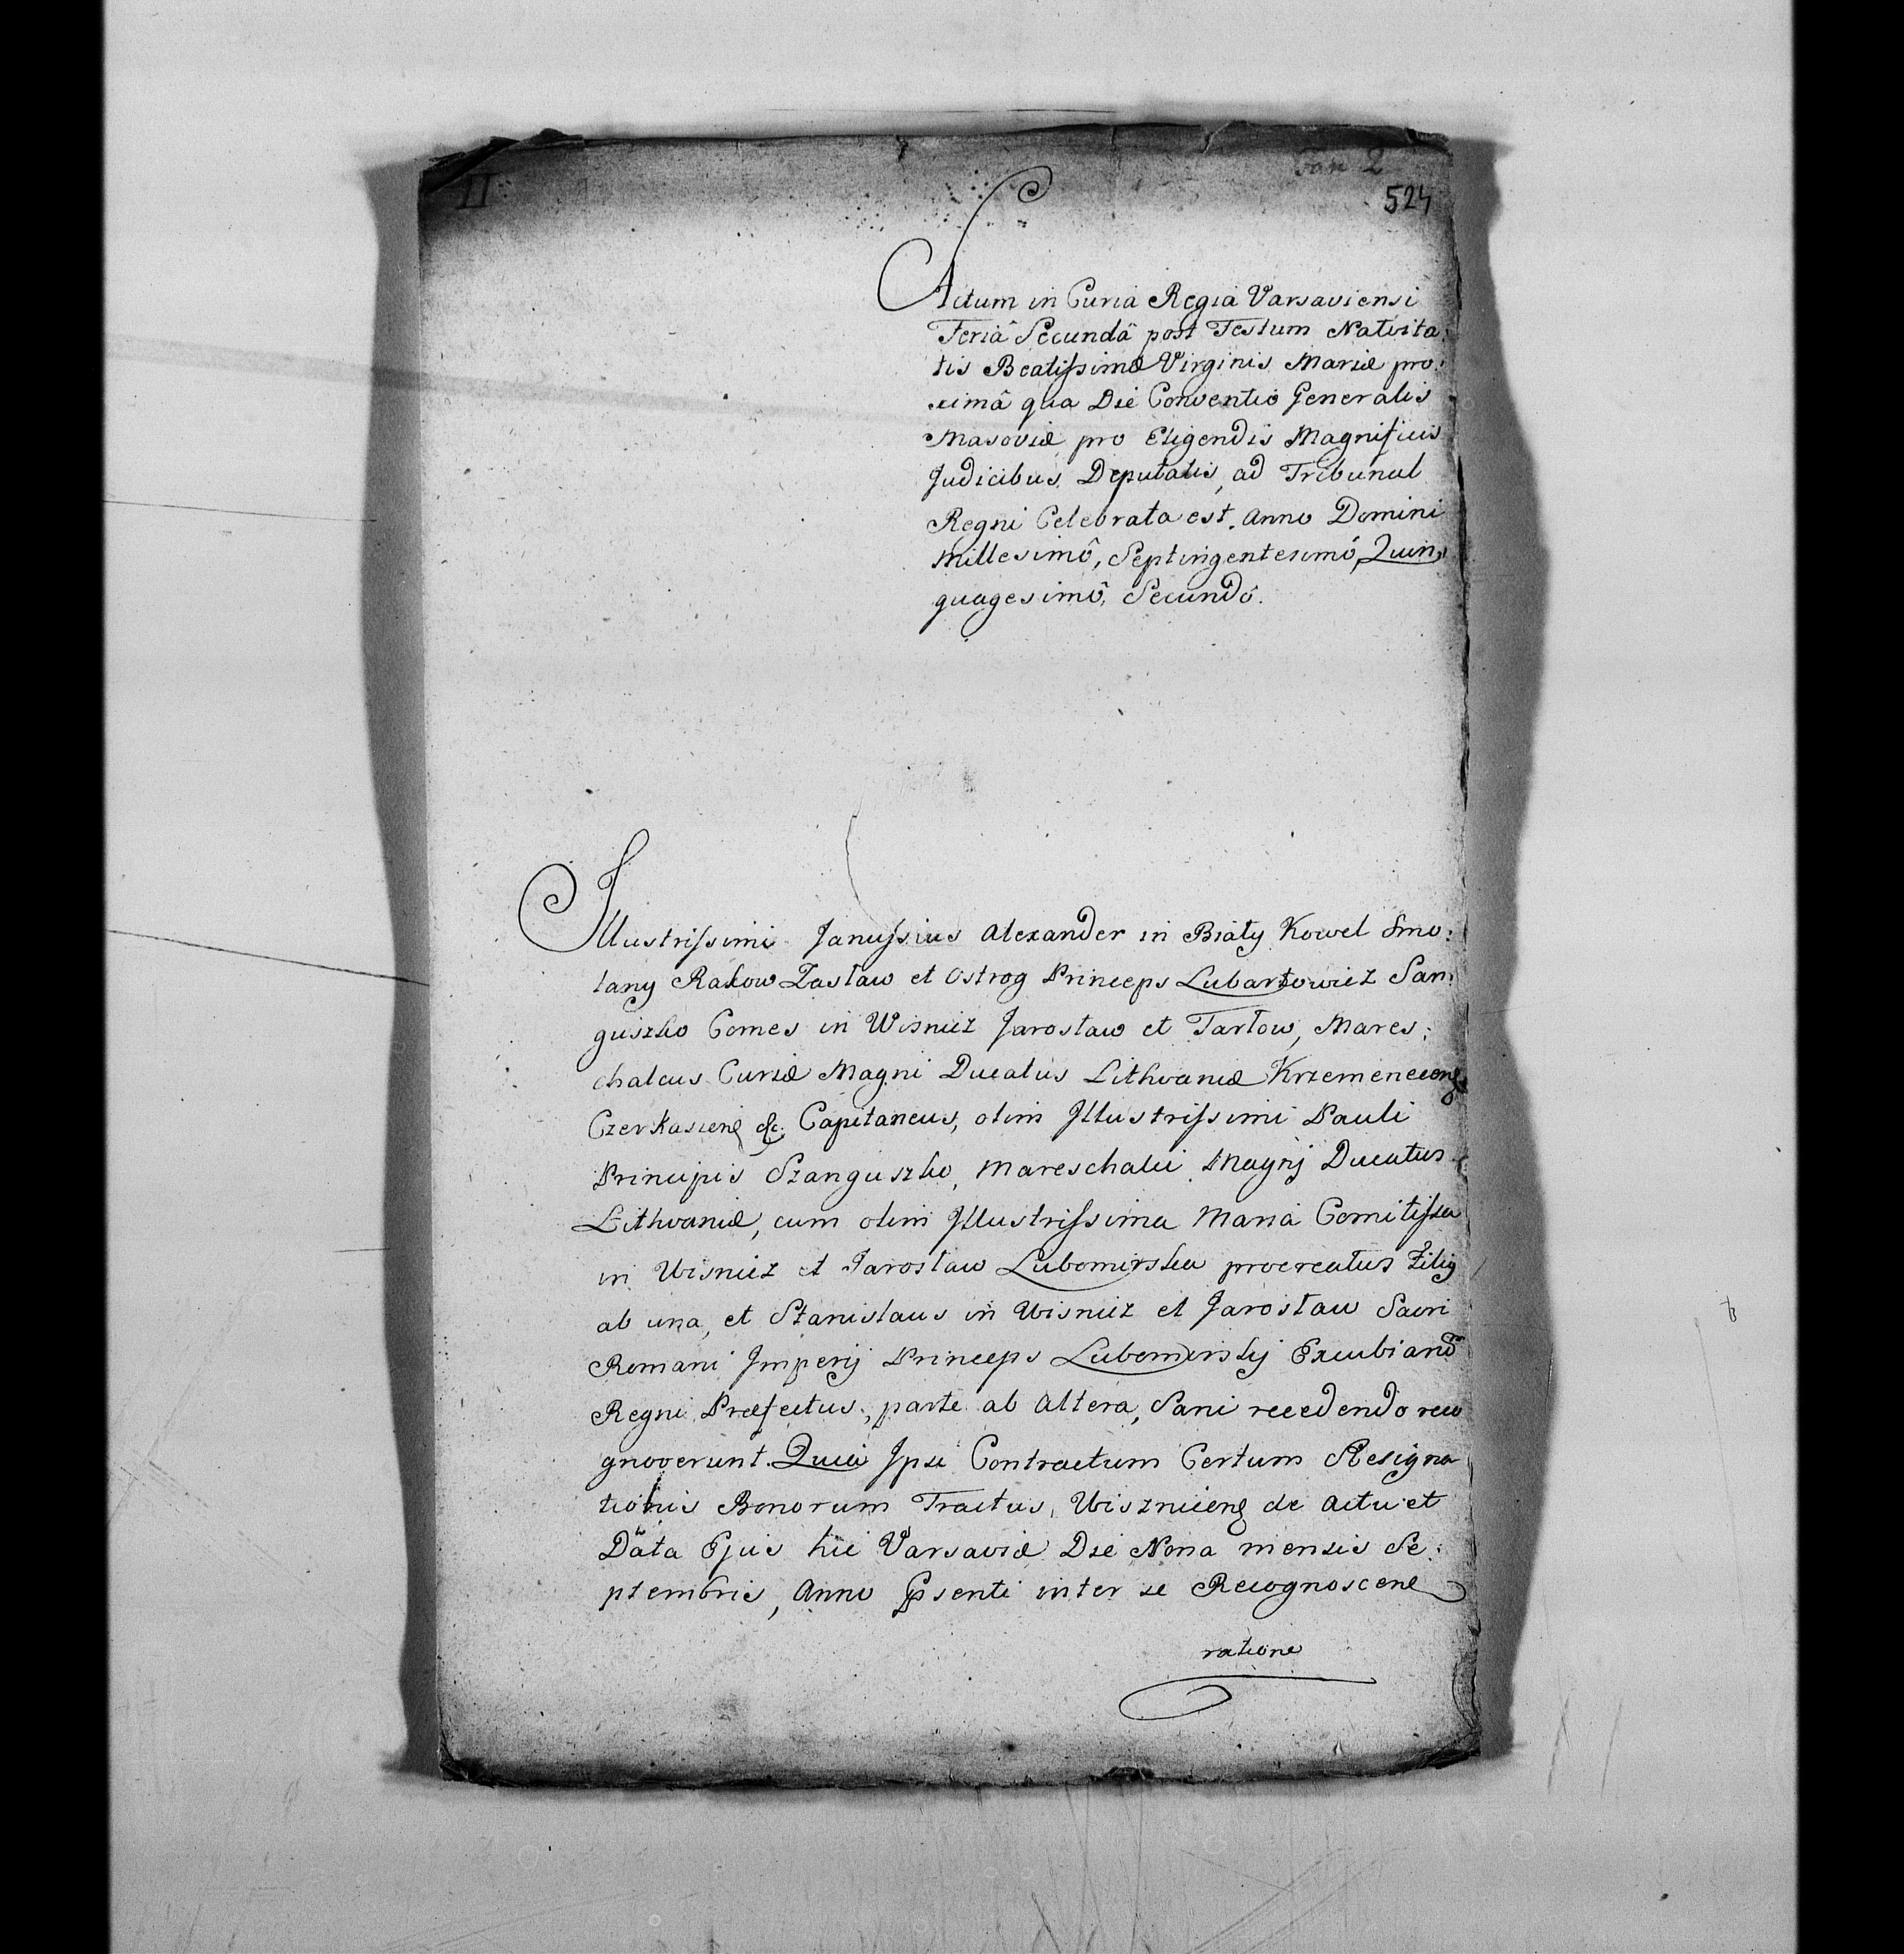 II
524
Actum in Curia Regiâ Varsaviensi
Feriâ Secundâ post Festum Nativita:
tis Beatissimæ Virginis Mariæ pro:
ximâ qua Die Conventio Generalis
Masoviæ pro Eligendis Magnificis
Judicibus Deputatis, ad Tribunal
Regni Celebrata est. Anno Domini
Millesimô, Septingentesimô, Quin
quagesimô, Secundô.
Illustrissimi Janussius Alexander in Biały Kowel Smo:
lany Rakow Zasław et Ostrog Princeps Lubartowicz San:
guszko Comes in Wisnicz Jarosław et Tarłow, Mares:
chalcus Curiæ Magni Ducatus Lithvaniæ Krzemenecenę
Czerkasienę &c. Capitaneus, olim Illustrissimi Pauli
Principis Szanguszko, Mareschalci Magnj Ducatus
Lithvaniæ, cum olim Illustrissima Maria Comitissa
in Wisnicz et Jarosław Lubomirska procreatus Filiꝯ
ab una, et Stanislaus in Wisnicz et Jarosław Sacri
Romani Imperij Princeps Lubomirskj Excubiarũ
Regni Præfectus, parte ab Altera, Sani recedendo reco
gnoverunt. Quia Ipsi Contractum Certum Resigna
tionis Bonorum Tractus, Wisznicenę de Actu et
Data Ejus hic Varsaviæ Die Nona mensis Se:
ptembris, Anno Pꝑsenti inter se Recognoscenę
ratione